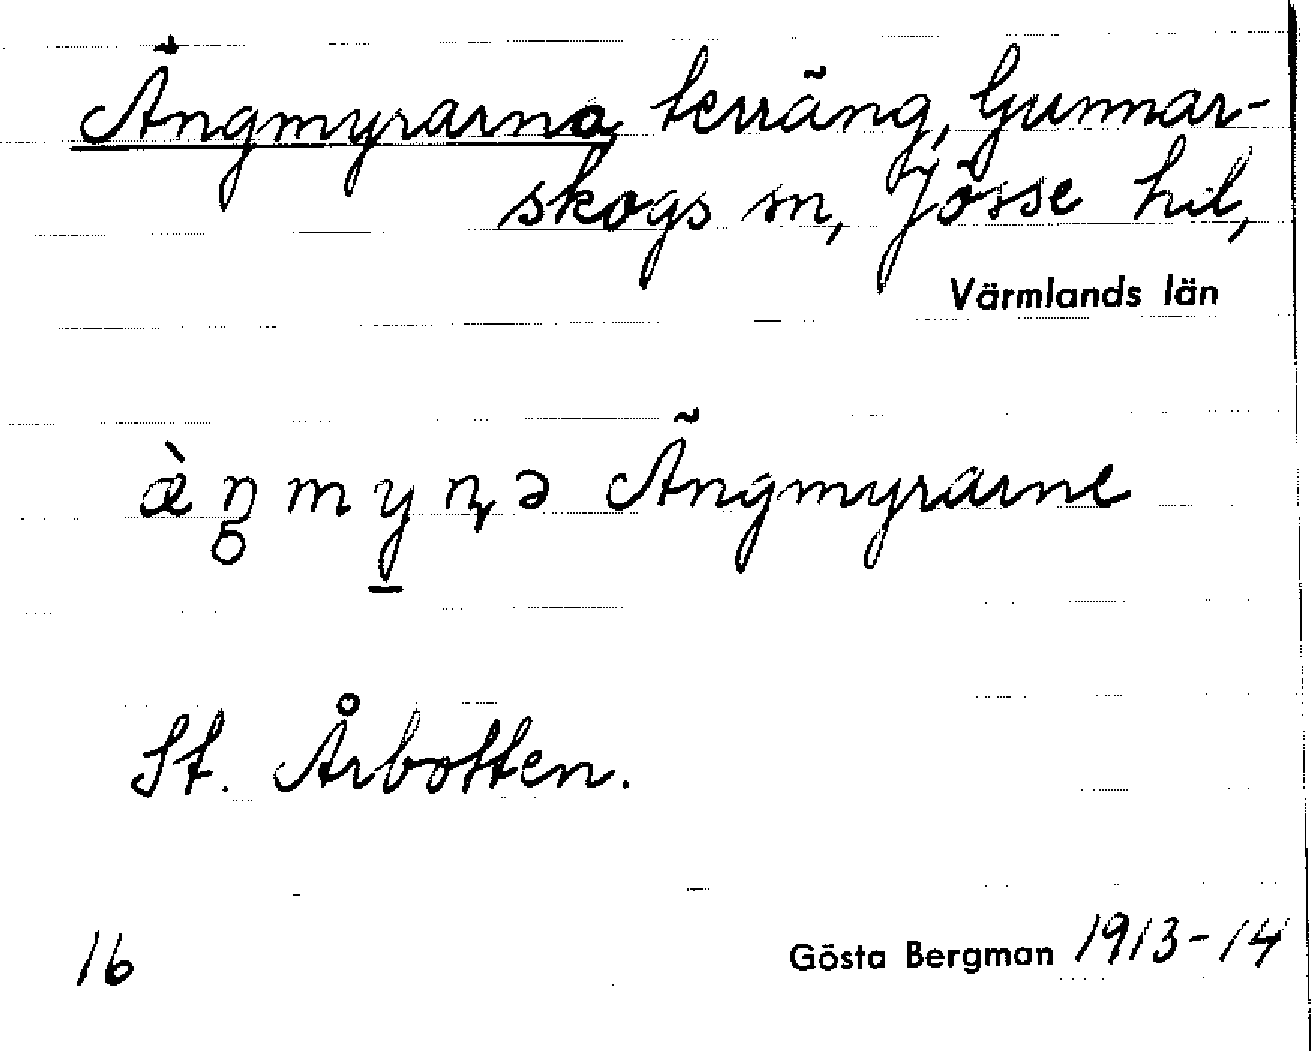 Ängmyrarna terräng, Gunnar-
skogs sn, Jösse hd,
Värmlands län
æ̀ŋmyɳə Ängmyrarne
St. Årbotten.
16 Gösta Bergman 1913-14